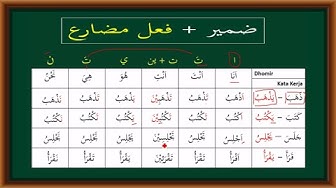 ضمير + فعل مضارع
ا تَ ت + ين ي تَ نَ
Dhomir أَنَا أَنْتَ أَنْتِ هُوَ هِيَ نَحْنُ
Kata Kerja
ذَهَبَ – يَذْهَبُ اَذْهَبُ تَذْهَبُ تَذْهَبِيْنَ يَذْهَبُ تَذْهَبُ نَذْهَبُ
كَتَبَ – يَكْتُبُ اَكْتُبُ تَكْتُبُ تَكْتُبِيْنَ يَكْتُبُ تَكْتُبُ نَكْتُبُ
جَلَسَ – يَجْلِسُ اَجْلِسُ تَجْلِسُ تَجْلِسِيْنَ يَجْلِسُ تَجْلِسُ نَجْلِسُ
قَرَأَ – يَقْرَأُ اَقْرَأُ تَقْرَأُ تَقْرَئِيْنَ يَقْرَأُ تَقْرَأُ نَقْرَأُ